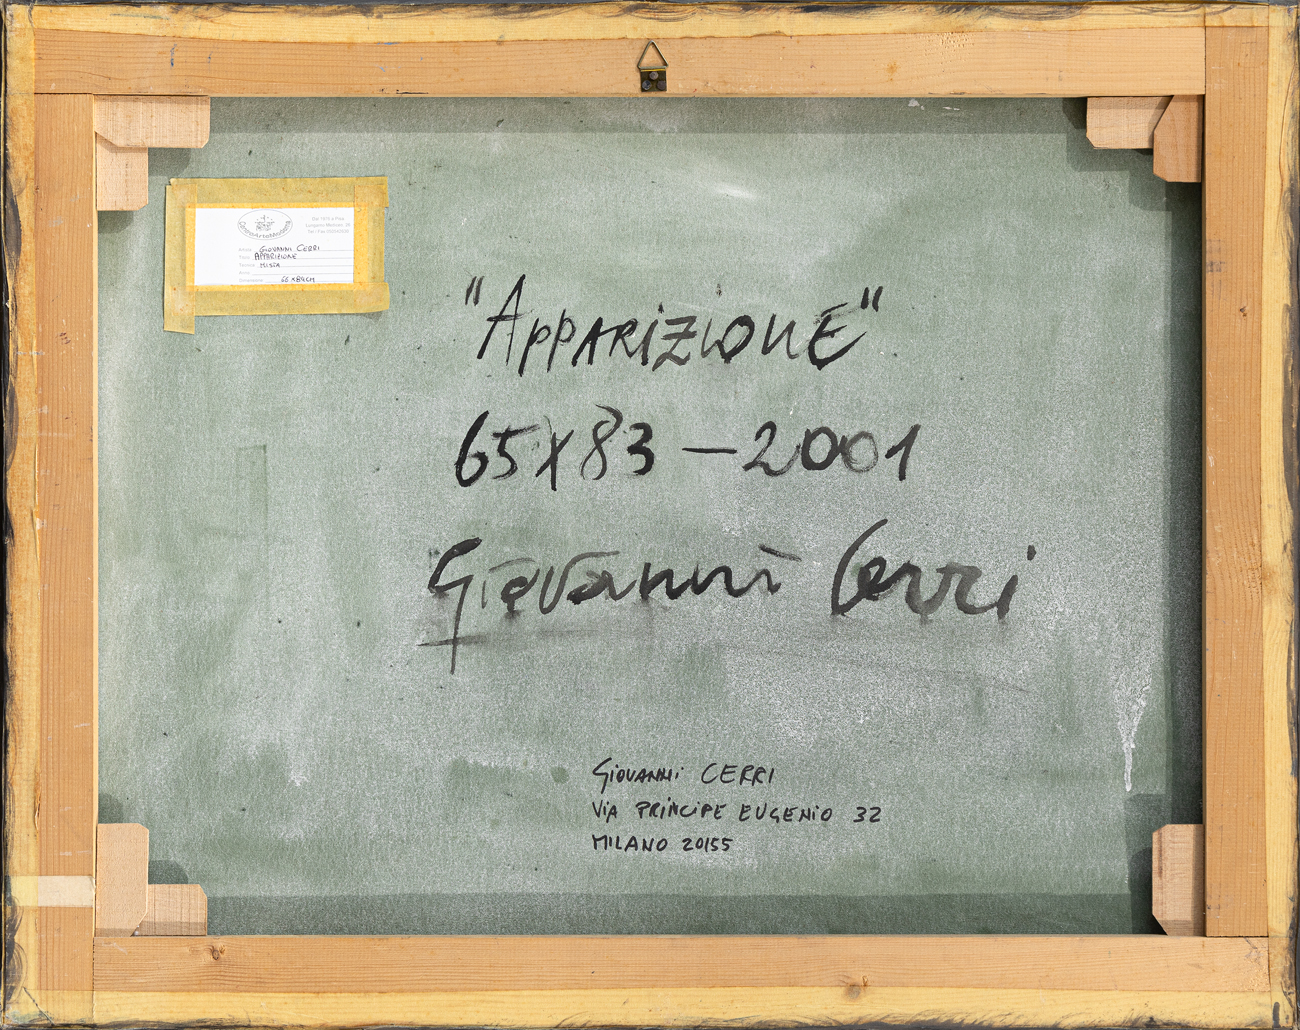 Dal 1970 a Pisa
Lungarno Mediceo 26
GIOVANNI CERRI
Titolo APPARIZIONE
Tecnica MISTA
Anno
Dimensione 65 x 84 CM
"APPARIZIONE"
65x83 – 2001
Giovanni Cerri
GIOVANNI CERRI
VIA PRINCIPE EUGENIO 32
MILANO 20155